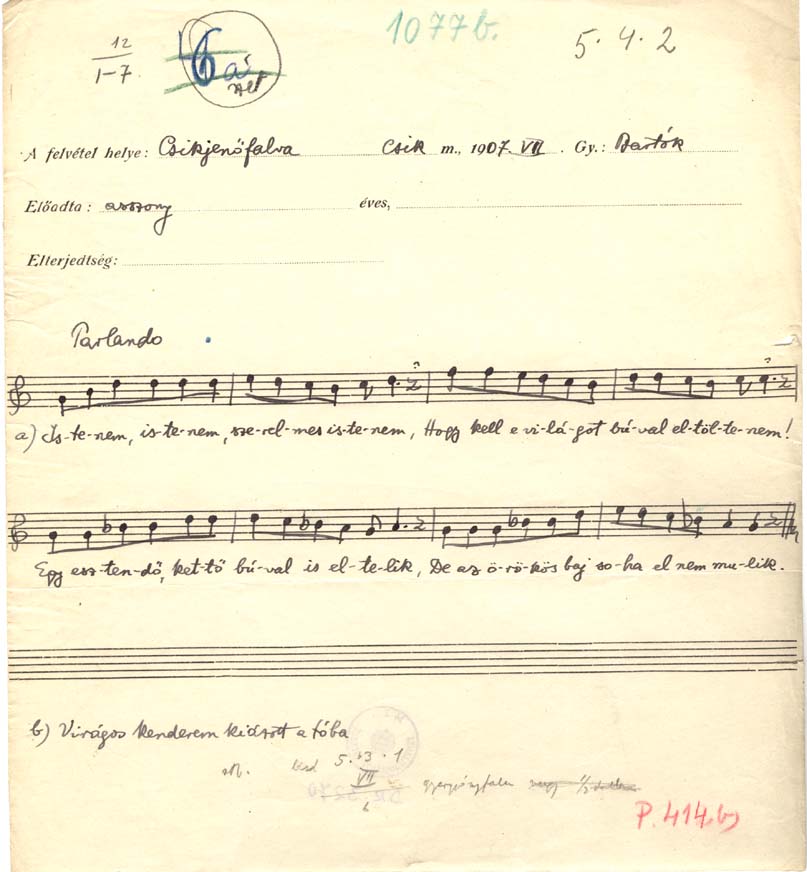 1077b.
5·4·2
12
1–7.
A felvétel helye: Csikjenőfalva Csik m., 1907. VII. Gy.: Bartók
Előadta: asszony éves,
Elterjedtség:
Parlando
a) Is-te-nem, is-te-nem, sze-rel-mes is-te-nem, Hogy kell e vi-lá-got bú-val el-töl-te-nem!
Egy esz-ten-dő, ket-tő bú-val is el-te-lik, De az ö-rö-kös baj so-ha el nem mu-lik.
b) Virágos kenderem kiázott a tóba
VII
P. 414.b)